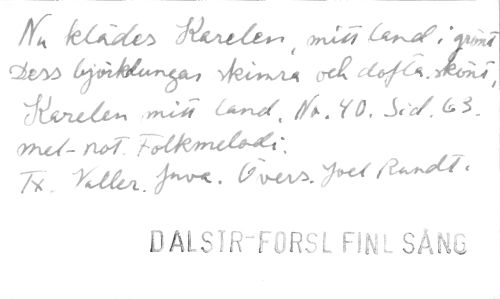 Nu klädes Karelen, mitt land i grönt
Dess björkdungar skimra och dofta skönt,
Karelen mitt land. No. 40. Sid. 63.
mel-not. Folkmelodi.
Tx. Valter. Juva. Övers. Joel Rundt.
DALSTR-FORSL FINL SÅNG